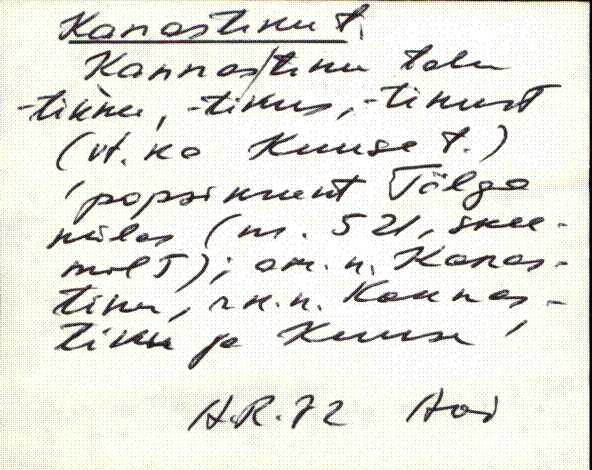 Kanastiku t.
Kannastiku talu
-tikku, -tikus, -tikust
(vt. ka Kuuse t.)
'popsikrunt Tõlga
külas (nr. 521, skee-
mil I); am. n. Kanas-
tiku, rk.n. Kannas-
tiku ja Kuuse'
H.R. 72 Aad